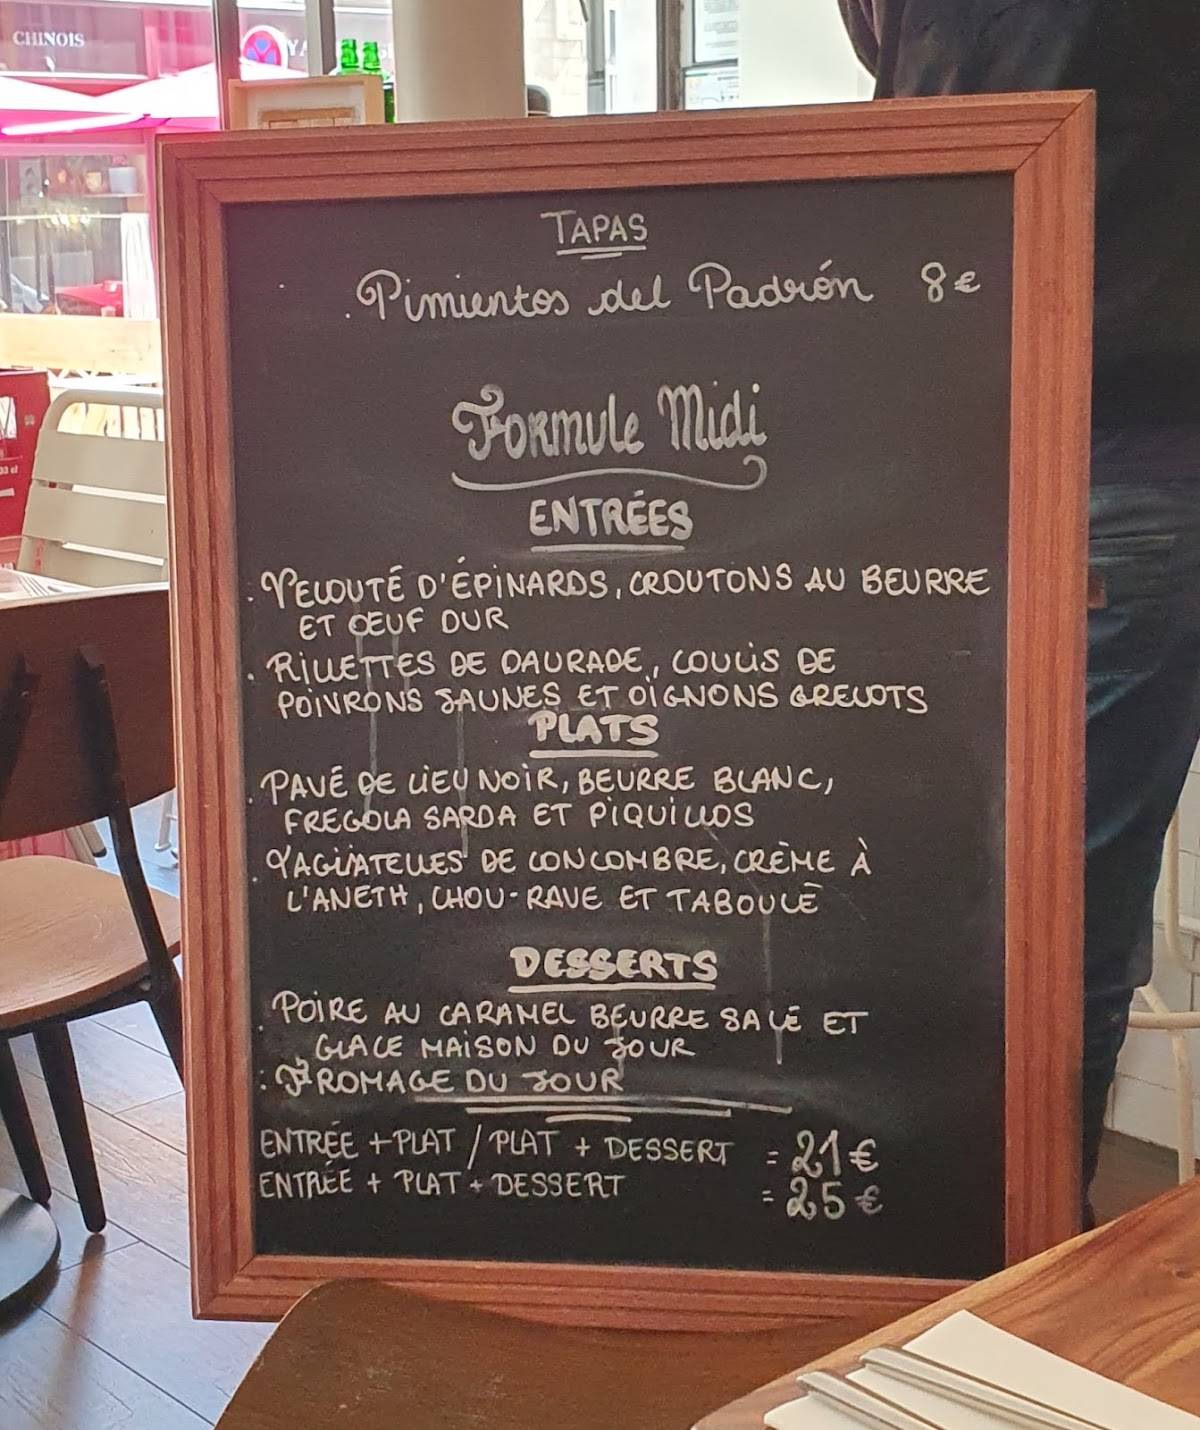 CHINOIS
TAPAS
. Pimientos del Padrón 8€
Formule Midi
ENTRÉES
. VELOUTÉ D'ÉPINARDS, CROUTONS AU BEURRE
ET OEUF DUR
. RILLETTES DE DAURADE, COULIS DE
POIVRONS JAUNES ET OIGNONS GRELOTS
PLATS
. PAVÉ DE LIEU NOIR, BEURRE BLANC,
FREGOLA SARDA ET PIQUILLOS
. TAGLIATELLES DE CONCOMBRE, CRÈME À
L'ANETH, CHOU-RAVE ET TABOULÉ
DESSERTS
. POIRE AU CARAMEL BEURRE SALÉ ET
GLACE MAISON DU JOUR
. FROMAGE DU JOUR
ENTRÉE + PLAT / PLAT + DESSERT = 21€
ENTRÉE + PLAT + DESSERT = 25€
33 cl